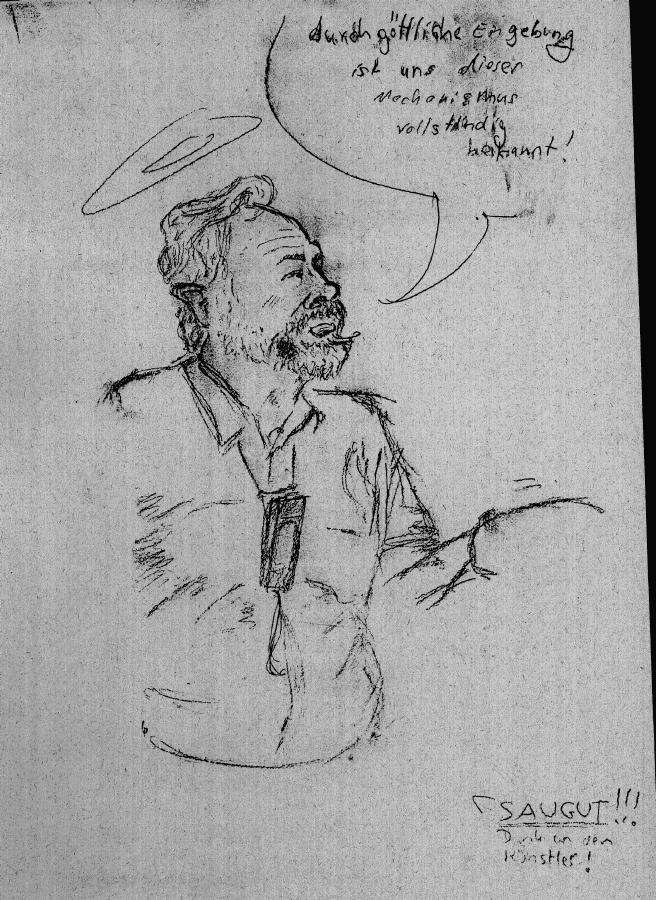 durch göttliche Eingebung
ist uns dieser
Mechanismus
vollständig
bekannt!
SAUGUT!!!
Dank an den
Künstler!